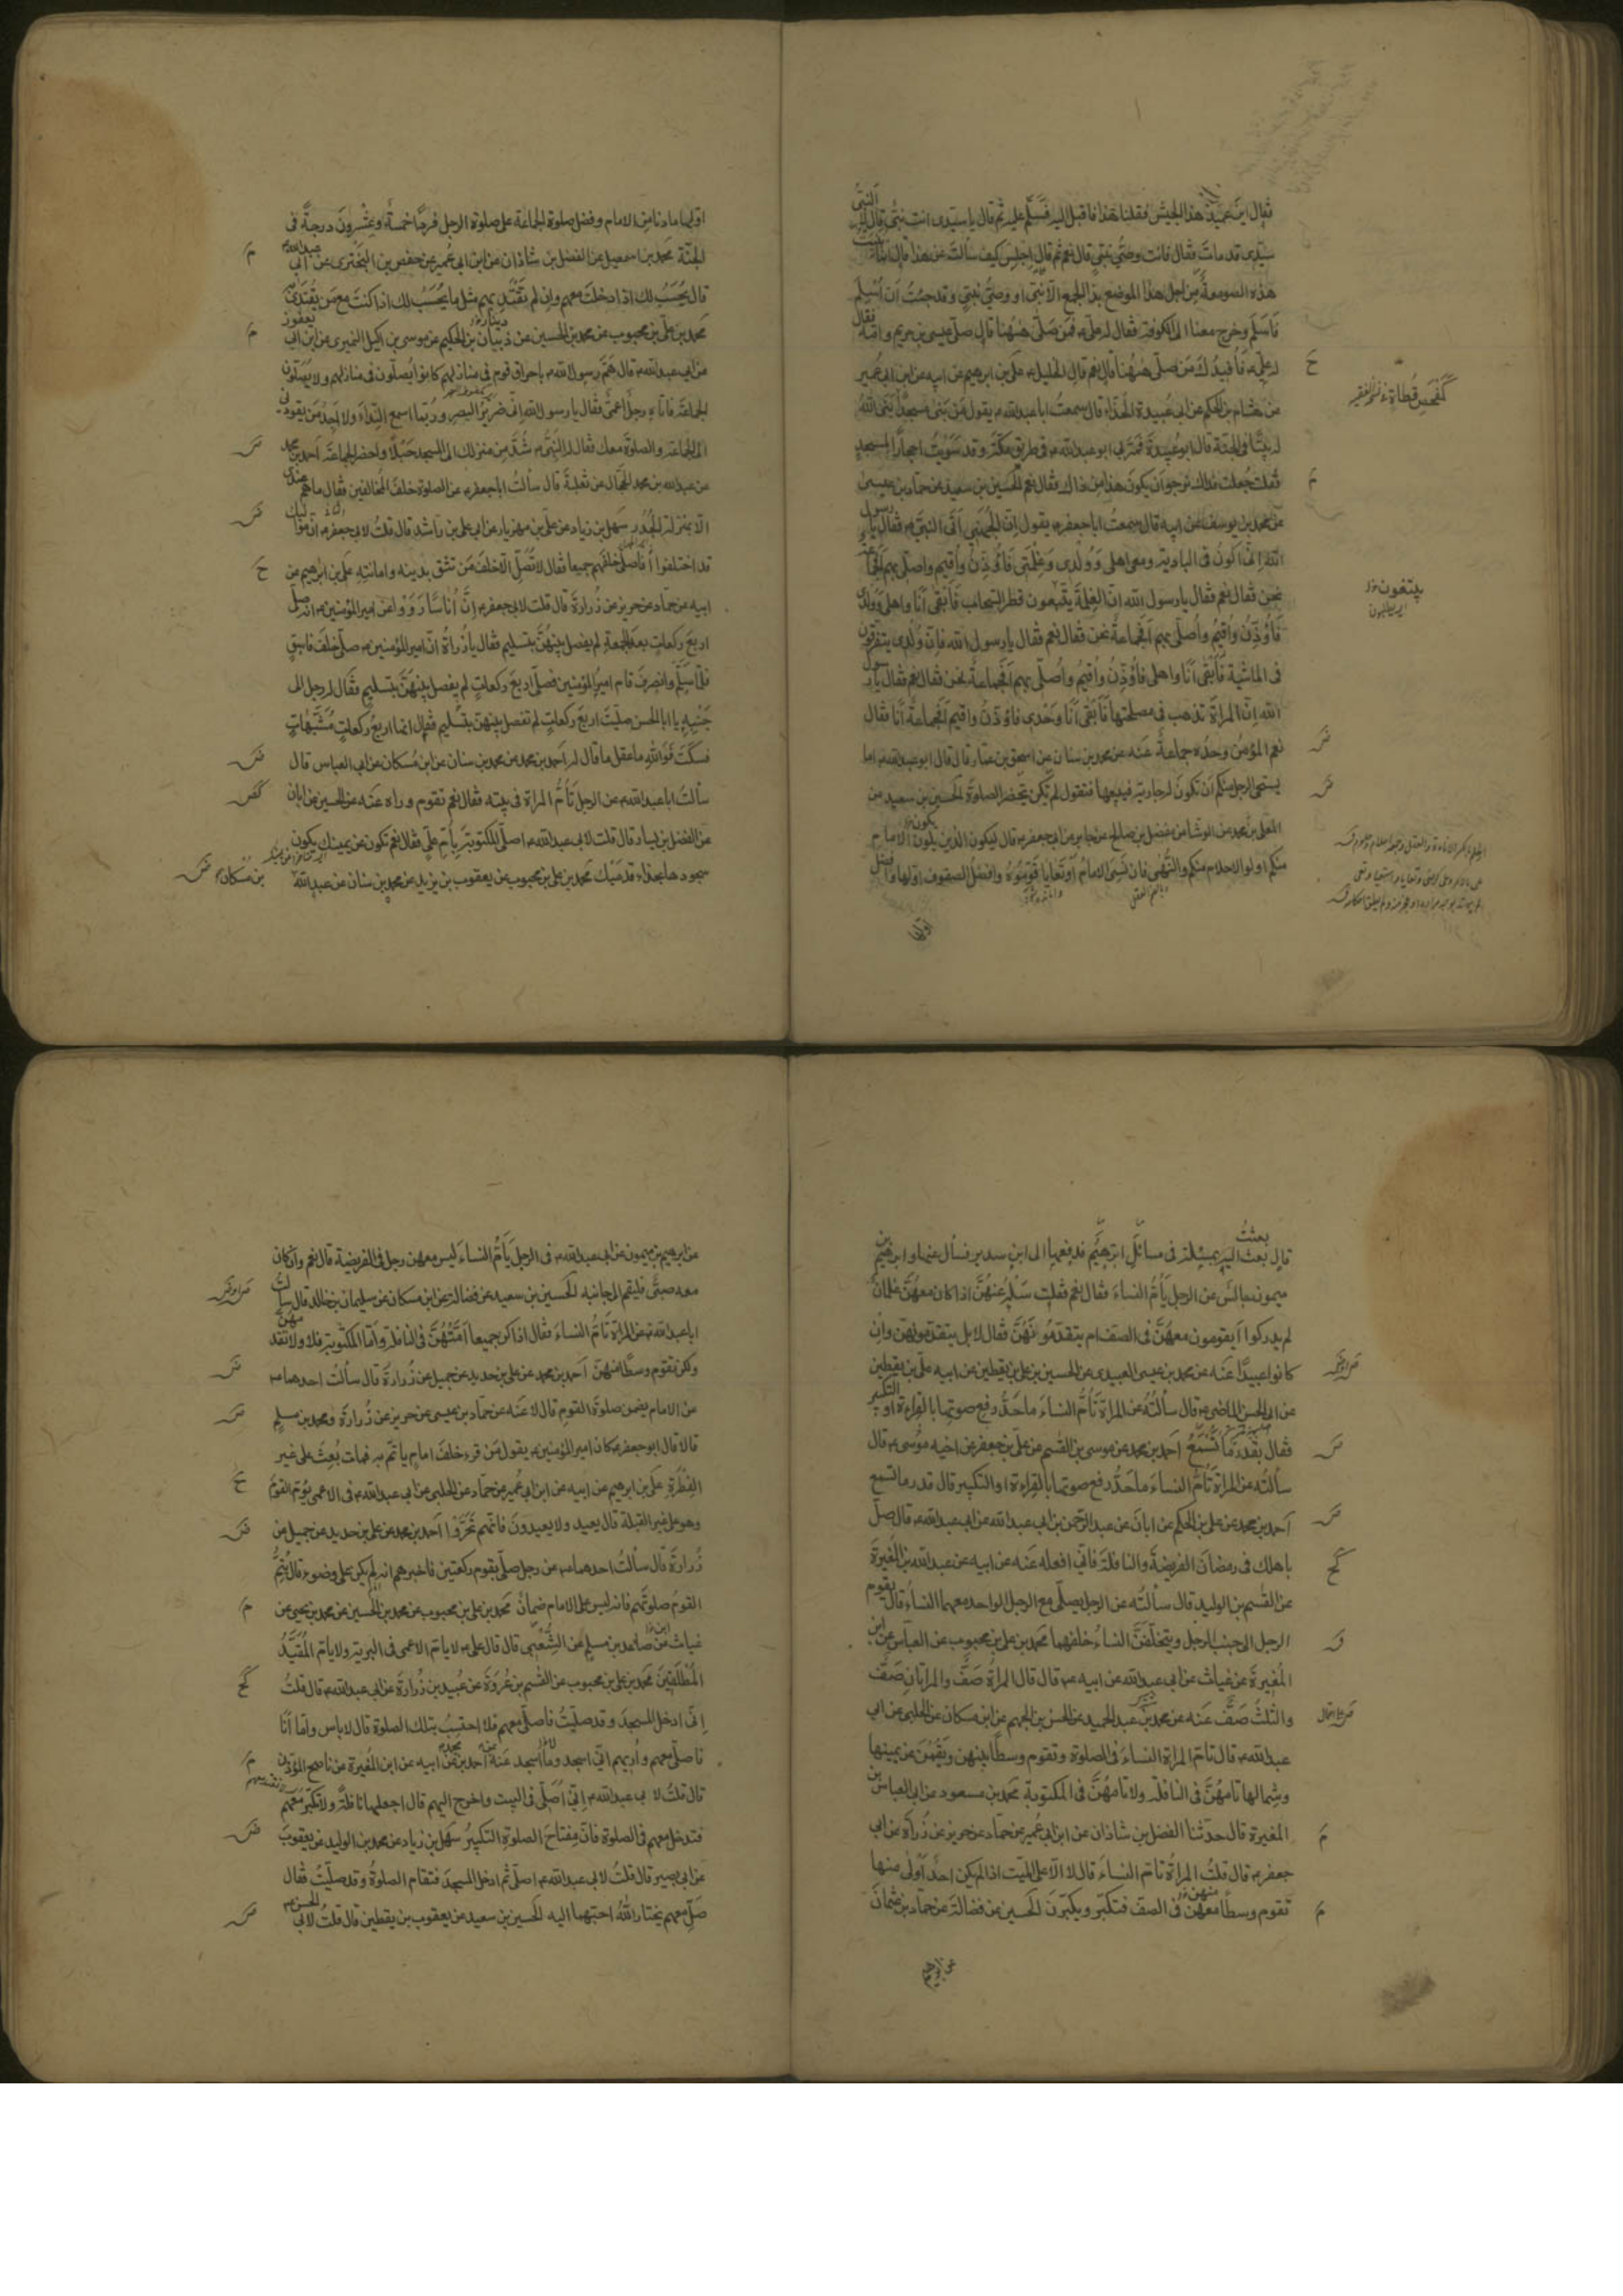 فقال اين عميد هذا الجيش فقلنا هذا فاقبل اليه فسلم عليه ثم قال يا سيدي انت نبي قال لا النبي
سيدي قد مات فقال فانت وصي نبي قال نعم ثم قال اجلس كيف سألت عن هذا قال انا بنيت
هذه الصومعة من اجل هذا الموضع
فاسلم وخرج معنا الى الكوفة فقال له علي فمن صلى ههنا قال صلى عيسى بن مريم وامه فقال
له علي فافيدك من صلى ههنا قال نعم قال الخليل علي بن ابرهيم عن ابيه عن ابن ابي عمير
عن هشام بن الحكم عن ابي عبيدة الحذاء قال سمعت ابا عبد الله يقول من بنى مسجدا بنى الله
له بيتا في الجنة قال ابو عبيدة فمر بي ابو عبد الله في طريق مكة وقد سويت احجارا لمسجد
فقلت جعلت فداك نرجو ان يكون هذا من ذاك فقال نعم الحسين بن سعيد عن حماد بن عيسى
عن محمد بن يوسف عن ابيه قال سمعت ابا جعفر يقول ان الجهني اتى النبي فقال يا رسول
الله اني اكون في البادية ومعي اهلي وولدي وغلمتي فاؤذن واقيم واصلي بهم افجماعة
نحن فقال نعم فقال يا رسول الله ان الغلمة يتبعون قطر السحاب فابقى انا واهلي وولدي
فاؤذن واقيم واصلي بهم افجماعة نحن فقال نعم فقال يا رسول الله فان ولدي يتفرقون
في الماشية فابقى انا واهلي فاؤذن واقيم واصلي بهم افجماعة نحن فقال نعم فقال يا رسول
الله ان المراة تذهب في مصلحتها فابقى انا وحدي فاؤذن واقيم افجماعة انا فقال
نعم المؤمن وحده جماعة عنه عن محمد بن سنان عن اسحق بن عمار قال قال ابو عبد الله اما
يستحيي الرجل منكم ان تكون له جارية فيبيعها فتقول لم يكن يحضر الصلوة الحسين بن سعيد عن
المعلى بن محمد عن الوشا عن مفضل بن صالح عن جابر عن ابي جعفر قال ليكون الذين يلون الامام
منكم اولو الاحلام منكم والنهى فان نسي الامام او تعايا قوموه وافضل الصفوف اولها وافضل
اولها
كمفحص قطاة
يتبعون
اولها ما دنا من الامام وفضل صلوة الجماعة على صلوة الرجل فرد اخمسة وعشرون درجة في
الجنة محمد بن اسمعيل عن الفضل بن شاذان عن ابن ابي عمير عن حفص بن البختري عن ابي عبد الله
قال يحسب لك اذا دخلت معهم وان لم تقتد بهم مثل ما يحسب لك اذا كنت مع من يقتدى به
محمد بن علي بن محبوب عن محمد بن الحسين عن ذبيان بن الحكيم عن موسى بن اكيل النميري عن ابن ابي يعفور
عن ابي عبد الله قال هم رسول الله باحراق قوم في منازلهم كانوا يصلون في منازلهم ولا يصلون
الجماعة فاتاه رجل اعمى فقال يا رسول الله اني ضرير البصر وربما اسمع النداء ولا اجد من يقودني
الى الجماعة والصلوة معك فقال له النبي شد من منزلك الى المسجد حبلا واحضر الجماعة احمد بن محمد
عن عبد الله بن محمد الحجال عن ثعلبة قال سألت ابا جعفر عن الصلوة خلف المخالفين فقال ما هم عندي
الا بمنزلة الجدر سهل بن زياد عن علي بن مهزيار عن ابي علي بن راشد قال قلت لابي جعفر ان مواليك
قد اختلفوا فاصلي خلفهم جميعا فقال لا تصل الا خلف من تثق بدينه وامانته علي بن ابرهيم عن
ابيه عن حماد عن حريز عن زرارة قال قلت لابي جعفر ان اناسا رووا عن امير المؤمنين انه صلى
اربع ركعات بعد الجمعة لم يفصل بينهن بتسليم فقال يا زرارة ان امير المؤمنين صلى خلف فاسق
فلما سلم وانصرف قام امير المؤمنين فصلى اربع ركعات لم يفصل بينهن بتسليم فقال له رجل الى
جنبه يا ابا الحسن صليت اربع ركعات لم تفصل بينهن بتسليم فقال انما اربع ركعات مشبهات
فسكت فوالله ما عقل ما قال له احمد بن محمد عن محمد بن سنان عن ابن مسكان عن ابي العباس قال
سألت ابا عبد الله عن الرجل يأم المراة في بيته فقال نعم تقوم وراه عنه عن الحسين عن ابان
عن الفضل بن يسار قال قلت لابي عبد الله اصلي المكتوبة بام علي فقال نعم تكون عن يمينك يكون
سجودها بحذاء قدميك محمد بن علي بن محبوب عن يعقوب بن يزيد عن محمد بن سنان عن عبد الله بن مسكان
قال بعثت اليه بمسئلة في مسائل ابرهيم فدفعها الى ابن سدير فسأل عنها وابرهيم بن
ميمون جالس عن الرجل يأم النساء فقال نعم فقلت سله عنهن اذا كان معهن غلمان
لم يدركوا ايقومون معهن في الصف ام يتقدمونهن فقال لا بل يتقدمونهن وان
كانوا عبيدا عنه عن محمد بن عيسى العبيدي عن الحسين بن علي بن يقطين عن ابيه علي بن يقطين
عن ابي الحسن الماضي قال سألته عن المراة تأم النساء ما حد رفع صوتها بالقراءة او التكبير
فقال بقدر ما تسمع احمد بن محمد عن موسى بن القسم عن علي بن جعفر عن اخيه موسى قال
سألته عن المراة تأم النساء ما حد رفع صوتها بالقراءة او التكبير قال قدر ما تسمع
احمد بن محمد عن علي بن الحكم عن ابان عن عبد الرحمن بن ابي عبد الله عن ابي عبد الله قال صل
باهلك في رمضان الفريضة والنافلة فاني افعله عنه عن ابيه عن عبد الله بن المغيرة
عن القسم بن الوليد قال سألته عن الرجل يصلي مع الرجل الواحد معهما النساء قال يقوم
الرجل الى جنب الرجل ويتخلفن النساء خلفهما محمد بن علي بن محبوب عن العباس عن ابن
المغيرة عن غياث عن ابي عبد الله عن ابيه قال قال المراة صف والمراتان صف
والثلث صف عنه عن محمد بن عبد الحميد عن الحسن بن الجهم عن ابن مسكان عن الحلبي عن ابي
عبد الله قال تأم المراة النساء في الصلوة وتقوم وسطا بينهن ويقمن عن يمينها
وشمالها تأمهن في النافلة ولا تأمهن في المكتوبة محمد بن مسعود عن ابي العباس بن
المغيرة قال حدثنا الفضل بن شاذان عن ابن ابي عمير عن حماد عن حريز عن زرارة عن ابي
جعفر قال قلت المراة تأم النساء قال لا الا على الميت اذا لم يكن احد اولى منها
تقوم وسطا معهن في الصف فتكبر ويكبرن الحسين عن فضالة عن حماد بن عثمان
عن ابرهيم
عن ابرهيم بن ميمون عن ابي عبد الله في الرجل يأم النساء ليس معهن رجل في الفريضة قال نعم وان كان
معه صبي فليقم الى جانبه الحسين بن سعيد عن فضالة عن ابن مسكان عن سليمان بن خالد قال سألت
ابا عبد الله عن المراة تأم النساء فقال اذا كن جميعا امتهن في النافلة واما المكتوبة فلا ولا تقدمهن
ولكن تقوم وسطا منهن احمد بن محمد عن علي بن حديد عن جميل عن زرارة قال سألت احدهما
عن الامام يضمن صلوة القوم قال لا عنه عن حماد بن عيسى عن حريز عن زرارة ومحمد بن مسلم
قالا قال ابو جعفر كان امير المؤمنين يقول من قرء خلف امام ياتم به فمات بعث على غير
الفطرة علي بن ابرهيم عن ابيه عن ابن ابي عمير عن حماد عن الحلبي عن ابي عبد الله في الاعمى يؤم القوم
وهو على غير القبلة قال يعيد ولا يعيدون فانهم تحروا احمد بن محمد عن علي بن حديد عن جميل عن
زرارة قال سألت احدهما عن رجل صلى بقوم ركعتين فاخبرهم انه لم يكن على وضوء قال يتم
القوم صلوتهم فانه ليس على الامام ضمان محمد بن علي بن محبوب عن محمد بن الحسين عن محمد بن يحيى عن
غياث عن صاعد بن مسلم عن الشعبي قال قال علي لا يام الاعمى في البرية ولا يام المقيد
المطلقين محمد بن علي بن محبوب عن القسم بن عروة عن عبيد بن زرارة عن ابي عبد الله قال قلت
اني ادخل المسجد وقد صليت فاصلي معهم فلا احتسب بتلك الصلوة قال لا باس واما انا
فاصلي معهم واريهم اني اسجد وما اسجد عنه احمد بن محمد عن ابيه عن ابن المغيرة عن ناصح المؤذن
قال قلت لابي عبد الله اني اصلي في البيت واخرج اليهم قال اجعلها نافلة ولا تكبر معهم
فتدخل معهم في الصلوة فان مفتاح الصلوة التكبير سهل بن زياد عن محمد بن الوليد عن يعقوب
عن ابي بصير قال قلت لابي عبد الله اصلي ثم ادخل المسجد فتقام الصلوة وقد صليت فقال
صل معهم يختار الله احبهما اليه الحسين بن سعيد عن يعقوب بن يقطين قال قلت لابي الحسن